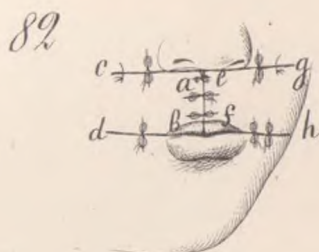 82
c a e g
d b f h